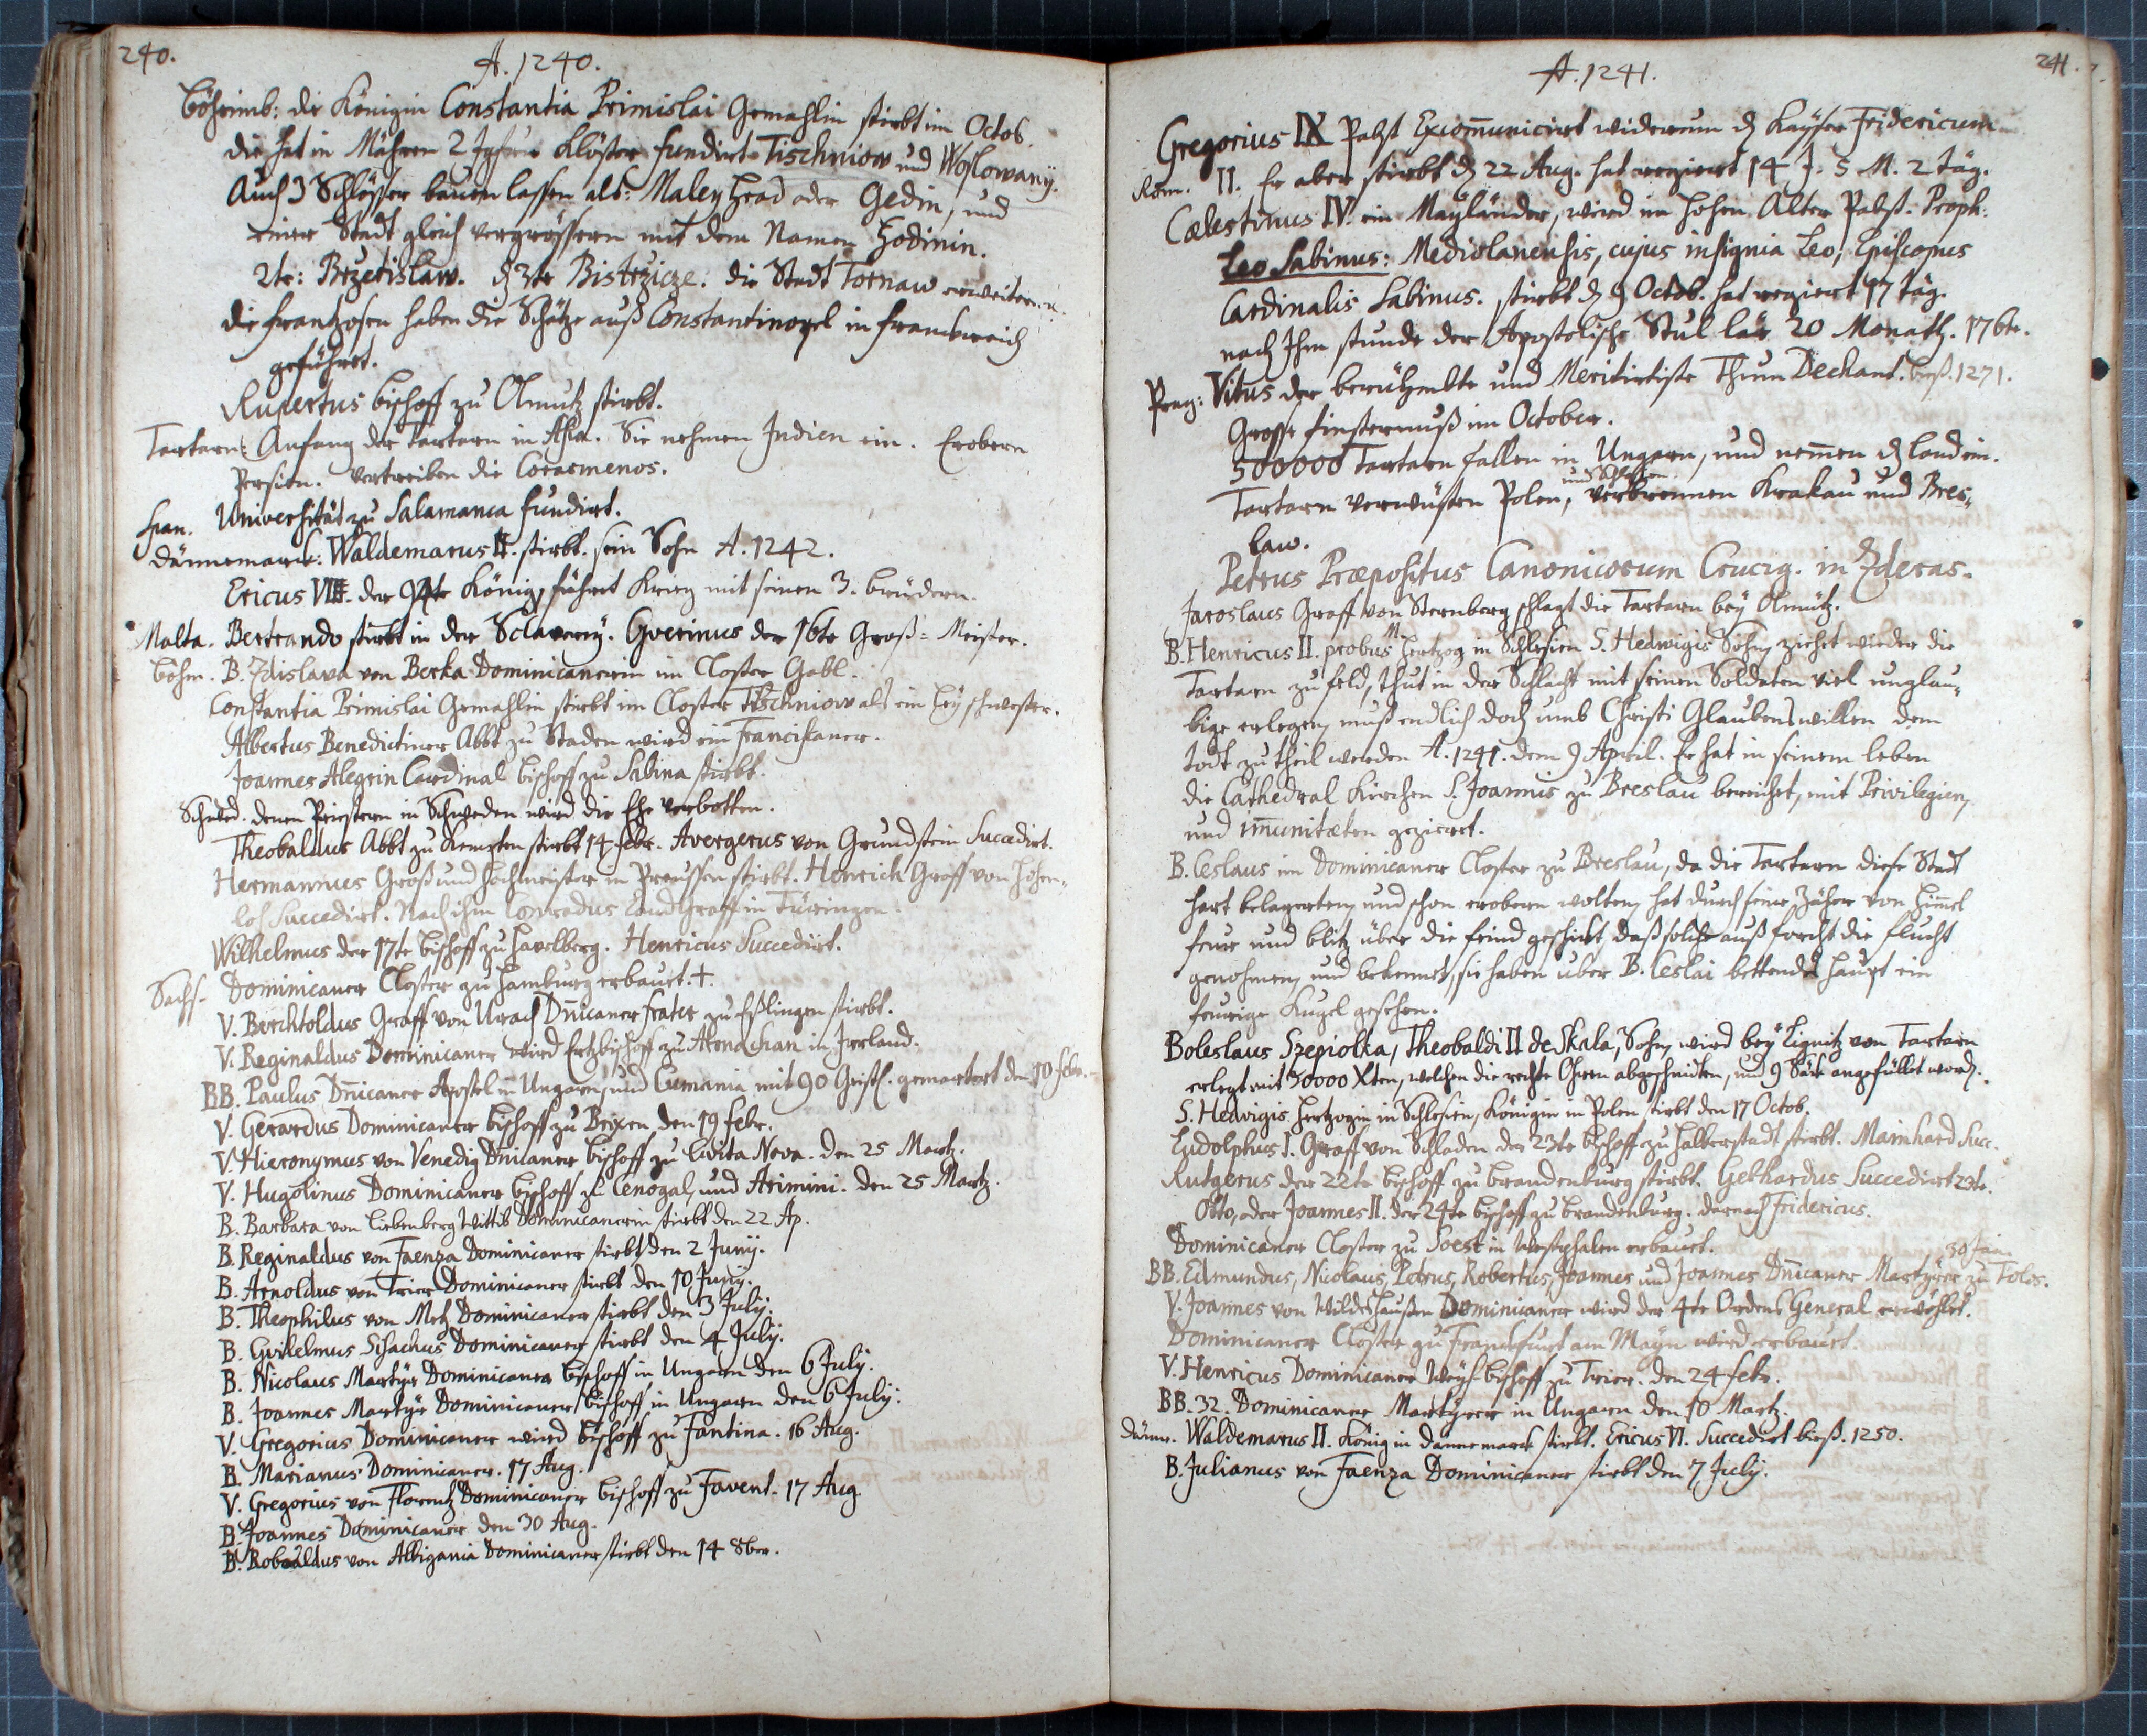 240.
A. 1240.
Böheimb: die Königin Constantia Primislai Gemahlin stirbt im Octob.
die hat in Mähren 2 Jgfrau Klöster fundirt Tischniow und Woslowany.
Auch 3 Schlösser bauen lassen als: Maley Hrad oder Gedin, und
einer Stadt gleich vergrössern mit dem Namen Hodinin.
2te: Brzetislaw. d 3te Bistrzicze. die Stadt Tornaw erweitern.
die frantzosen haben die Schätze auß Constantinopel in franckreich
geführet.
Rupertus bischoff zu Olmutz stirbt.
Tartarn: Anfang der Tartarn in Asia. Sie nehmen Indien ein. Erobern
Persien. Vertreiben die Corasmenos.
Span. Universität zu Salamanca fundirt.
Dännemarck: Waldemarus II. stirbt. sein Sohn A. 1242.
Ericus VIII. der 94te König, führet Krieg mit seinen 3. brüdern.
Malta. Bertrando stirbt in der Sclaverey. Gverinus der 16te Groß-Meister.
böhm. B. Zdislava von Berka Dominicanerin im Closter Gabl.
Constantia Primislai Gemahlin stirbt im Closter Tischniow als ein Leyschwester.
Albertus Benedictiner Abbt zu Staden wird ein Franciscaner.
Joannes Alegrin Cardinal bischoff zu Sabina stirbt.
Schwed. denen Priestern in Schweden wird die Ehe verbotten.
Theobaldus Abbt zu Kempten stirbt 14 febr. Avergerus von Grundstein Succedirt.
Hermannus Groß und Hochmeister in Preussen stirbt. Henrich Graff von Hohen-
loh Succedirt. Nach ihm Conradus Landgraff in Türingen.
Wilhelmus der 17te bischoff zu Havelberg. Henricus Succedirt.
Sachs. Dominicaner Closter zu Hamburg erbauet. +.
V. Berchtoldus Graff von Urach Dn̄icaner frater zu Eßlingen stirbt.
V. Reginaldus Dominicaner wird Ertzbischoff zu Armachan in Irrland.
BB. Paulus Dn̄icaner Apostel in Ungarn, und Cumania mit 90 Geistl. gemartert den 10 febr.
V. Gerardus Dominicaner bischoff zu Brixen den 19 febr.
V. Hieronymus von Venedig Dn̄icaner bischoff zu Civita Nova. den 25 Martz.
V. Hugolinus Dominicaner bischoff zu Cenogal, und Arimini. den 25 Martz.
B. Barbara von Liebenberg Wittib Dominicanerin stirbt den 22 Ap.
B. Reginaldus von Faenza Dominicaner stirbt den 2 Junij.
B. Arnoldus von Trier Dominicaner stirbt den 10 Junij.
B. Theophilus von Metz Dominicaner stirbt den 3 Julij.
B. Gvilelmus Sischachus Dominicaner stirbt den 4 Julij.
B. Nicolaus Martÿr Dominicaner bischoff in Ungarn den 6 Julij.
B. Joannes Martÿr Dominicaner bischoff in Ungarn den 6 Julij.
V. Gregorius Dominicaner wird bischoff zu Fantina. 16 Aug.
B. Marianus Dominicaner. 17 Aug.
V. Gregorius von Florentz Dominicaner bischoff zu Favent. 17 Aug.
B. Joannes Dominicaner den 30 Aug.
B. Robaldus von Albigania Dominicaner stirbt den 14 8ber.
241.
A. 1241.
Gregorius IX Pabst Excom̄unicirt widerum d Kayser Fridericum
Rom. II. Er aber stirbt d 22 Aug. hat regiert 14 J. 5 M. 2 täg.
Cælestinus IV. ein Mayländer, wird im hohen Alter Pabst. Proph:
Leo Sabinus: Mediolanensis, cujus insignia Leo, Episcopus
Cardinalis Sabinus. stirbt d 9 Octob. hat regiert 17 täg.
nach Ihm stunde der Apostolische Stul lär 20 Monath. 176te.
Prag: Vitus der berühmbte und Meritirtiste Thum Dechant. bieß. 1271.
Grosse finsternuß im October.
500000 Tartarn fallen in Ungarn, und nem̄en d land ein.
und Schlesien
Tartarn verwüsten Polen, verbrennen Krakau und Bres-
law.
Petrus Præpositus Canonicorum Crucig. in Zderas.
Jaroslaus Graff von Sternberg schlagt die Tartarn beÿ Olmütz.
B. Henricus II. probus M Hertzog in Schlesien S. Hedwigis Sohn, ziehet wieder die
Tartarn zu feld, thut in der Schlacht mit seinen Soldaten viel unglau-
bige erlegen, muß endlich doch umb Christi Glaubens willen dem
todt zu theil werden A. 1241. dem 9 April. Er hat in seinem leben
die Cathedral Kirchen S. Joannis zu Breslau bereichet, mit Privilegien,
und im̄unitæten gezieret.
B. Ceslaus im Dominicaner Closter zu Breslau, da die Tartarn diese Stadt
hart belagerten, und schon erobern wolten, hat durch seine Zäher von Him̄el
feuer und blitz über die feind geschickt, daß solche auß forcht die flucht
genohmen, und bekennet, sie haben uber B. Ceslai bettendes haupt ein
feurige Kugel gesehen.
Boleslaus Szepiolka, Theobaldi II de Skala, Sohn, wird beÿ Lignitz von Tartarn
erlegt mit 30000 Xten, welchen die rechte Ohren abgeschnitten, und 9 Säck angefüllet word.
S. Hedvigis Hertzogin in Schlesien, Königin in Polen stirbt den 17 Octob.
Ludolphus I. Graff von Schladen der 23te bischoff zu Halberstadt stirbt. Mainhard Succ.
Rutgerus der 22te bischoff zu Brandenburg stirbt. Gebhardus Succedirt 23te.
Otto, oder Joannes II. der 24te bischoff zu Brandenburg. darnach Fridericus.
Dominicaner Closter zu Soest in Westphalen erbauet.
30 Jan.
BB. Edmundus, Nicolaus, Petrus, Robertus, Joannes und Joannes Dn̄icaner Martyrer zu Tolos.
V. Joannes von Wildeshaußen Dominicaner wird der 4te Ordens General erwöhlet.
Dominicaner Closter zu Franckfurt am Maÿn wird erbauet.
V. Henricus Dominicaner Weyhbischoff zu Trier. den 24 febr.
BB. 32. Dominicaner Martyrer in Ungarn den 10 Martz.
Dänn. Waldemarus II. König in Dännemarck stirbt. Ericus VI. Succedirt bieß. 1250.
B. Julianus von Faenza Dominicaner stirbt den 7 Julij.